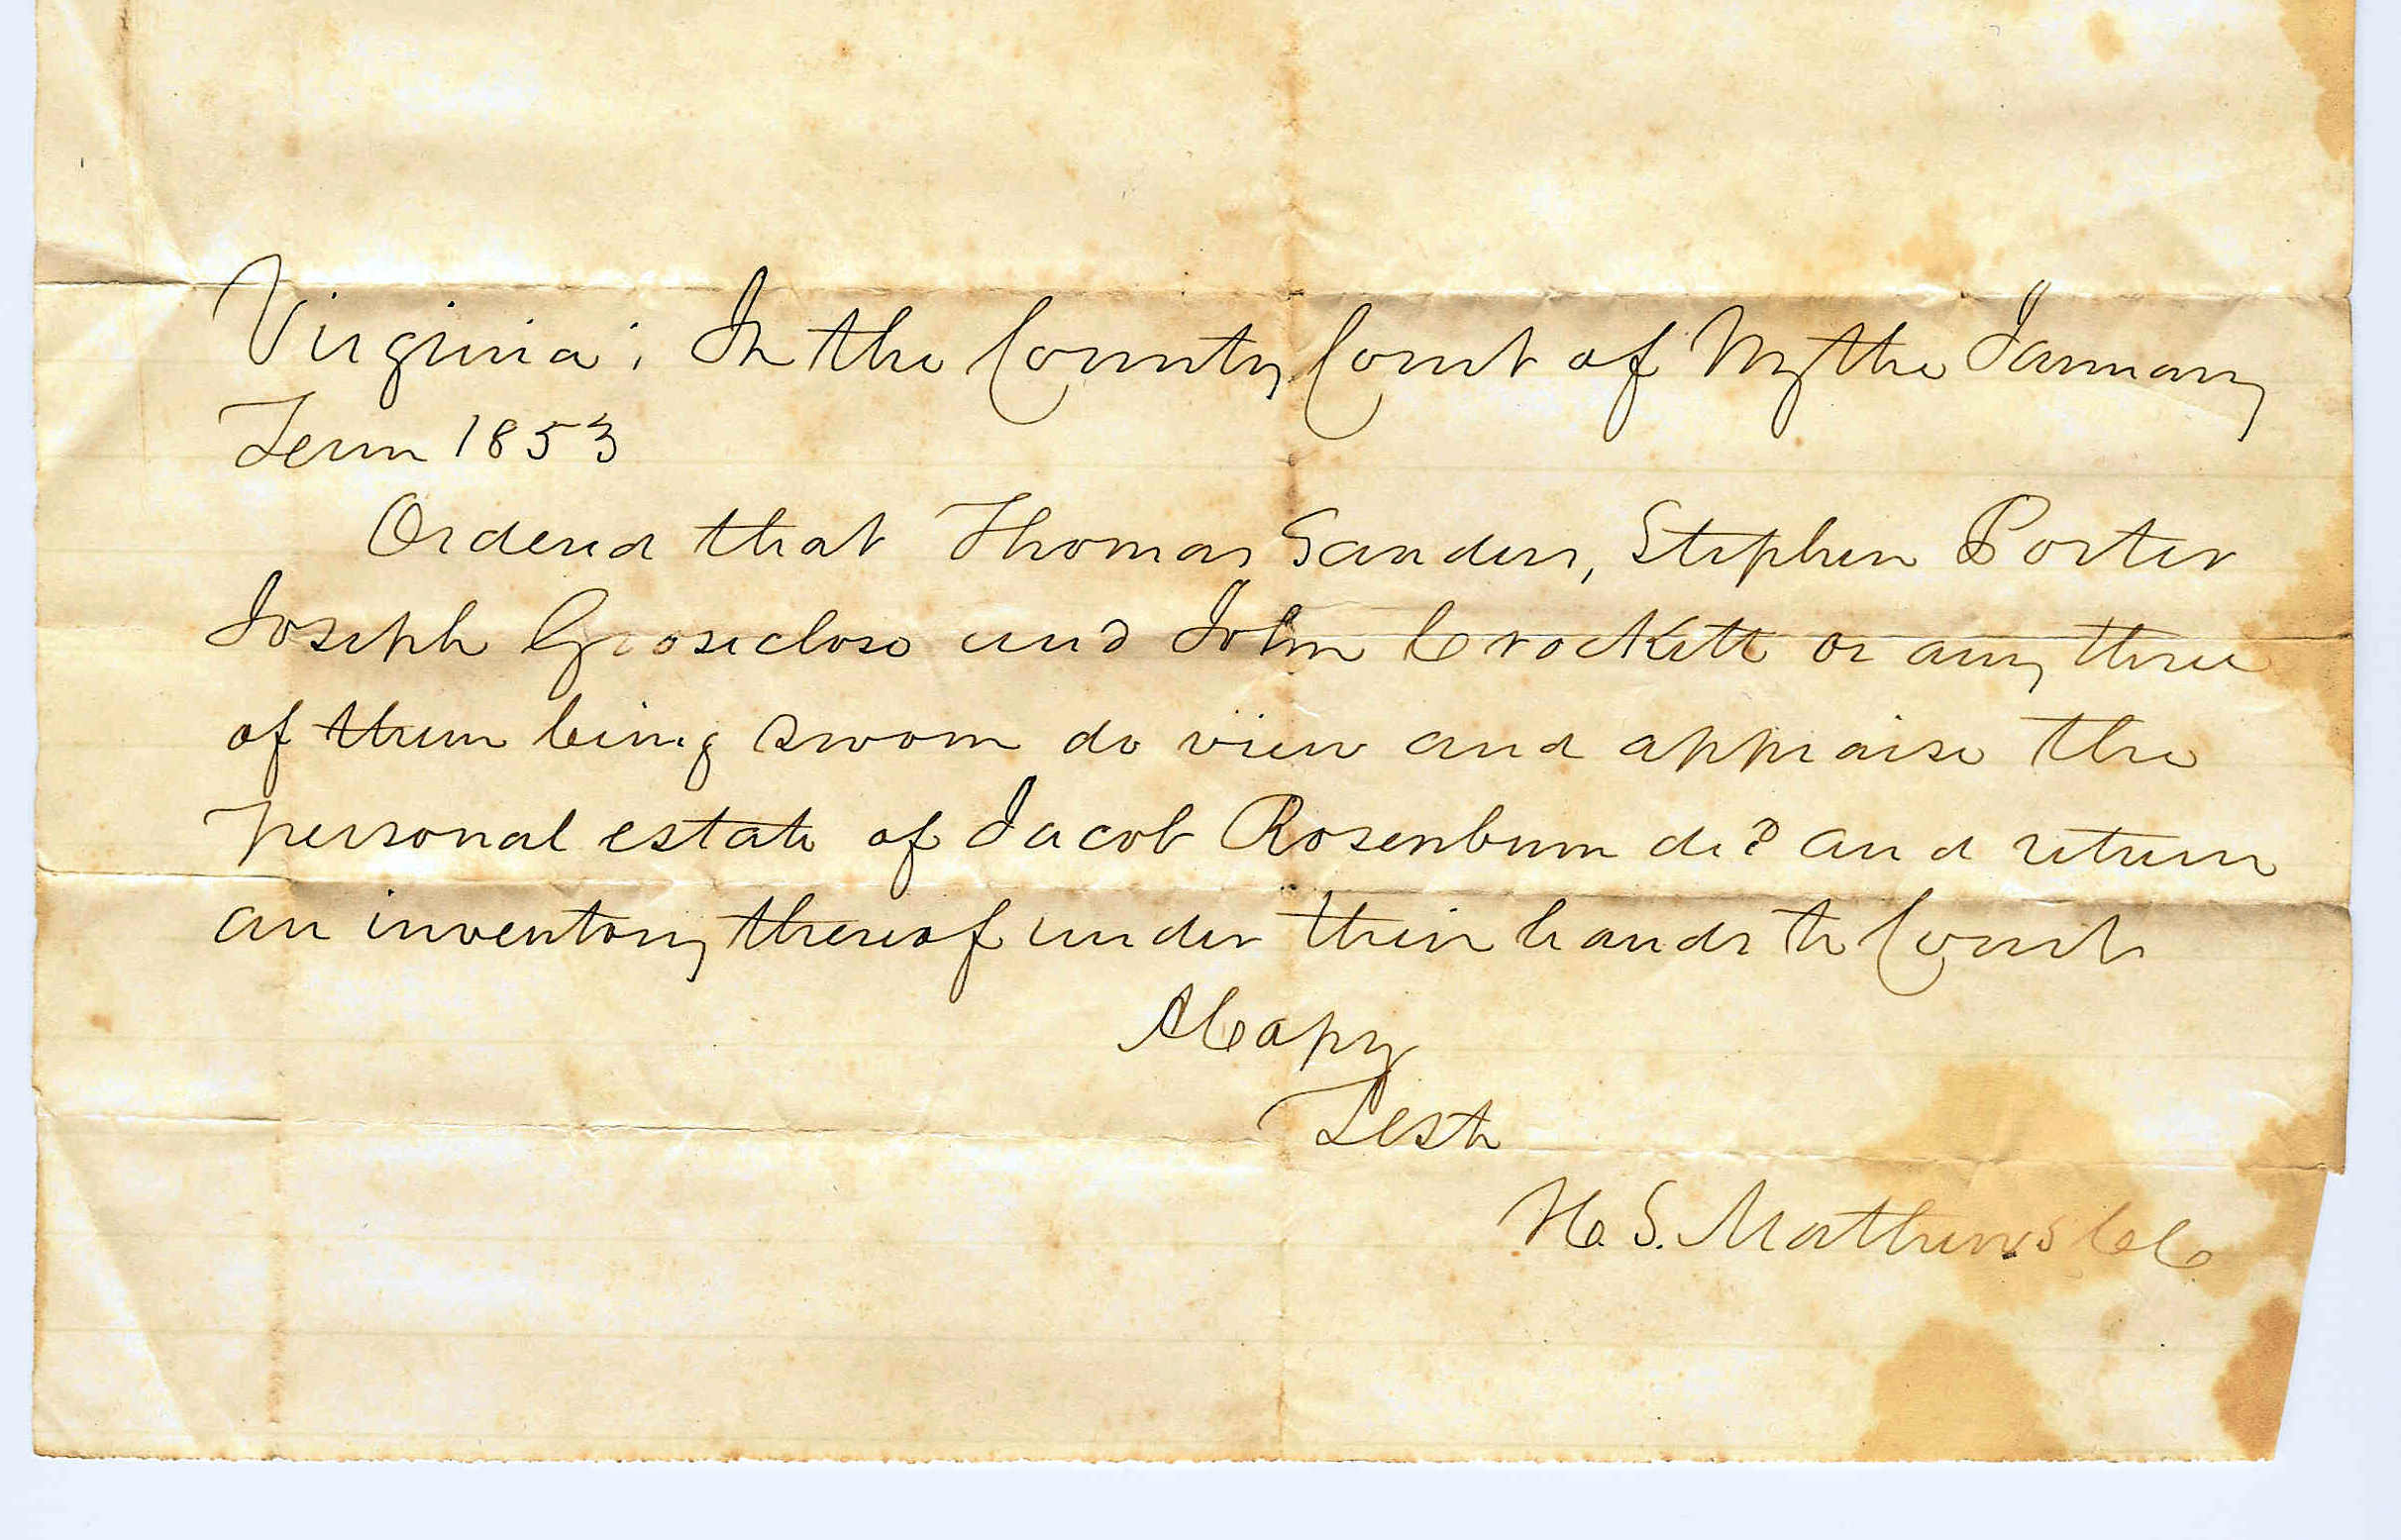 Virginia: In the County Court of Wythe January
Term 1853
Ordered that Thomas Sanders, Stephen Porter
Joseph Groseclose and John Crockett or any three
of them being sworn do view and appraise the
personal estate of Jacob Rosenbum decd and return
an inventory thereof under their hands to Court
A Copy
Teste
H. S. Mathews CC